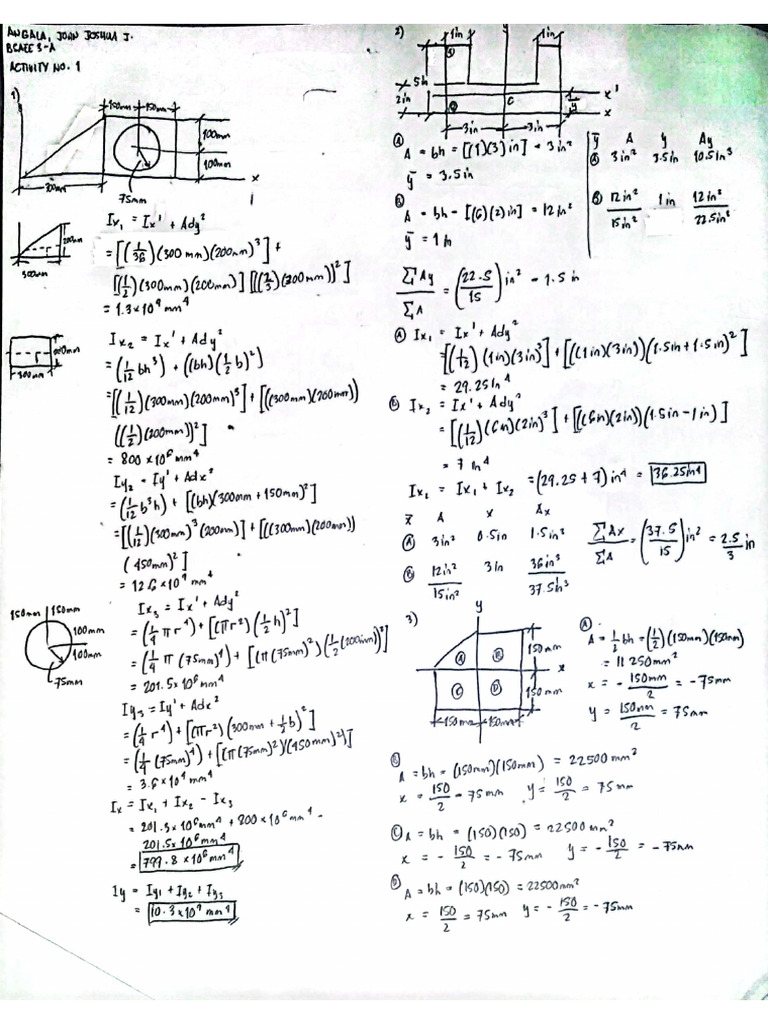 ANGALA, JOHN JOSHUA J.
BCAEE 3-A
ACTIVITY NO. 1
1)
150mm 150mm
100mm
100mm
300mm
75mm
x
200mm
300mm
Ix₁ = Ix' + Ady²
= [(1/36)(300 mm)(200mm)³] +
[(1/2)(300mm)(200mm)] [((2/3)(200mm))²]
= 1.3 x 10⁹ mm⁴
200mm
300mm
Ix₂ = Ix' + Ady²
= (1/12 bh³) + ((bh)(1/2 b)²)
= [(1/12)(300mm)(200mm)³] + [((300mm)(200mm))
((1/2)(200mm))²]
= 800 x 10⁶ mm⁴
Iy₂ = Iy' + Adx²
= (1/12 b³h) + [(bh)(300mm + 150mm)²]
= [(1/12)(300mm)³(200mm)] + [((300mm)(200mm))
(450mm)²]
= 12.6 x 10⁹ mm⁴
150mm 150mm
100mm
100mm
75mm
Ix₃ = Ix' + Ady²
= (1/4 π r⁴) + [(πr²)(1/2 h)²]
= (1/4 π (75mm)⁴) + [(π(75mm)²)(1/2(200mm))²]
= 201.5 x 10⁶ mm⁴
Iy₃ = Iy' + Adx²
= (1/4 r⁴) + [(πr²)(300mm + 1/2 b)²]
= (1/4 (75mm)⁴) + [(π(75mm)²)(450mm)²]
= 3.6 x 10⁹ mm⁴
Ix = Ix₁ + Ix₂ - Ix₃
= 201.5 x 10⁶ mm⁴ + 800 x 10⁶ mm⁴ -
201.5 x 10⁶ mm⁴
= 799.8 x 10⁶ mm⁴
Iy = Iy₁ + Iy₂ + Iy₃
= 10.3 x 10⁹ mm⁴
2)
1in y 1in
A
5in
2in
B C
x'
x
3in 3in
A
A = bh = [(1)(3) in] = 3in²
ȳ = 3.5in
B
A = bh = [(6)(2) in] = 12in²
ȳ = 1 in
ȳ A y Ay
A 3in² 3.5in 10.5in³
B 12in² 1in 12in³
15in² 22.5in³
ΣAy/ΣA = (22.5/15) in² = 1.5 in
A Ix₁ = Ix' + Ady²
= [(1/12)(1in)(3in)³] + [((1in)(3in))(1.5in + 1.5in)²]
= 29.25in⁴
B Ix₂ = Ix' + Ady²
= [(1/12)(6in)(2in)³] + [((6in)(2in))(1.5in - 1in)]
= 7 in⁴
Ix₁ = Ix₁ + Ix₂ = (29.25 + 7) in⁴ = 36.25in⁴
x̄ A x Ax
A 3in² 0.5in 1.5in³
B 12in² 3in 36in³
15in² 37.5in³
ΣAx/ΣA = (37.5/15) in² = 2.5/3 in
3)
y
A B
C D
x
150mm
150mm
150mm 150mm
A
A = 1/2 bh = (1/2)(150mm)(150mm)
= 11 250mm²
x = - 150mm/2 = -75mm
y = 150mm/2 = 75mm
B
A = bh = (150mm)(150mm) = 22500 mm²
x = 150/2 = 75mm y = 150/2 = 75mm
C A = bh = (150)(150) = 22500 mm²
x = - 150/2 = -75mm y = - 150/2 = -75mm
D
A = bh = (150)(150) = 22500mm²
x = 150/2 = 75mm y = - 150/2 = -75mm